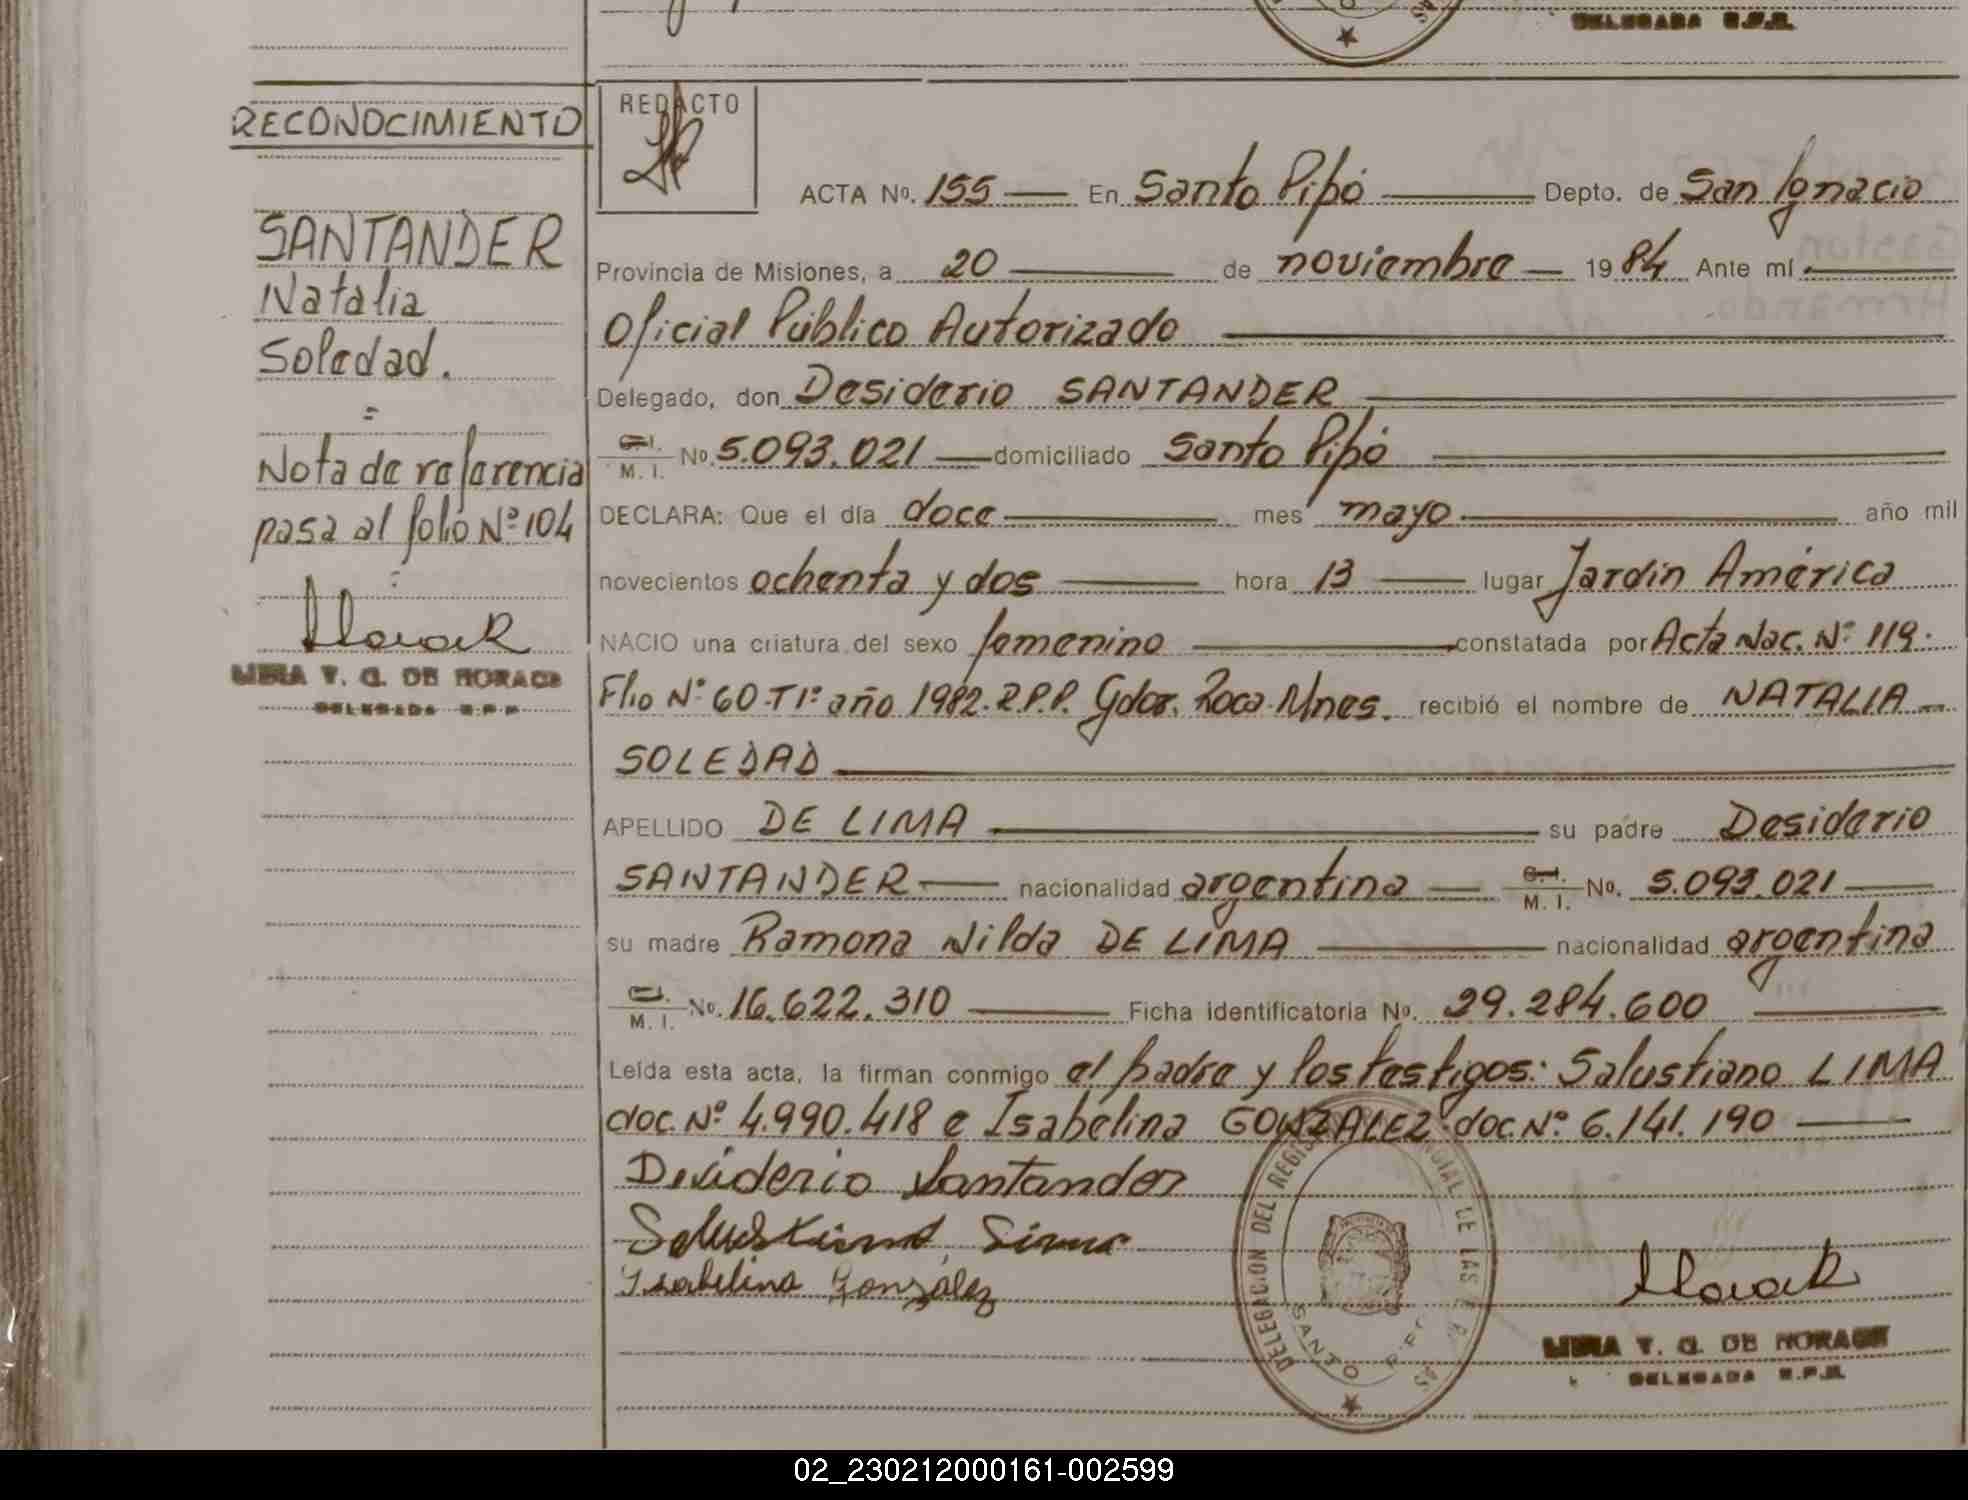 DELEGADA R.P.P.
RECONOCIMIENTO
SANTANDER
Natalia
Soledad.
=
Nota de referencia
pasa al folio Nº 104
LIDIA T. G. DE
DELEGADA R.P.P.
REDACTO
ACTA Nº. 155 — En Santo Pipó — Depto. de San Ignacio
Provincia de Misiones, a 20 — de noviembre — 19 84 Ante mí —
Oficial Público Autorizado —
Delegado, don Desiderio SANTANDER —
C.I. M.I. Nº 5.093.021 — domiciliado Santo Pipó —
DECLARA: Que el día doce — mes mayo — año mil
novecientos ochenta y dos — hora 13 — lugar Jardín América
NACIO una criatura del sexo femenino — constatada por Acta Nac. Nº 119.
Flio Nº 60-T1º año 1982. R.P.P. Gdor. Roca. Mnes. recibió el nombre de NATALIA —
SOLEDAD —
APELLIDO DE LIMA — su padre Desiderio
SANTANDER — nacionalidad argentina — C.I. M.I. Nº. 5.093.021 —
su madre Ramona Nilda DE LIMA — nacionalidad argentina
C.I. M.I. Nº. 16.622.310 — Ficha identificatoria Nº. 29.284.600 —
Leída esta acta, la firman conmigo el padre y los testigos: Salustiano LIMA
doc. Nº 4.990.418 e Isabelina GONZALEZ doc. Nº 6.141.190 —
Desiderio Santander
Salustiano Lima
Ysabelina González
DELEGACION DEL REGISTRO PROVINCIAL DE LAS PERSONAS
SANTO PIPO
LIDIA T. G. DE
DELEGADA R.P.P.
02_230212000161-002599